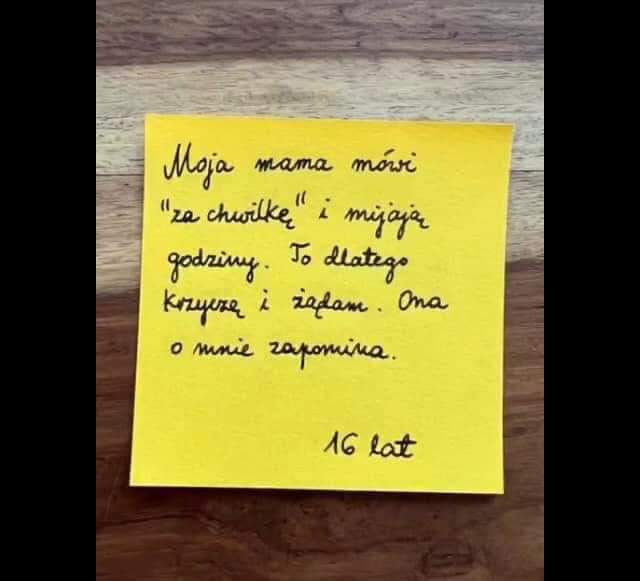 Moja mama mówi
"za chwilkę" i mijają
godziny. To dlatego
krzyczę i żądam. Ona
o mnie zapomina.
16 lat